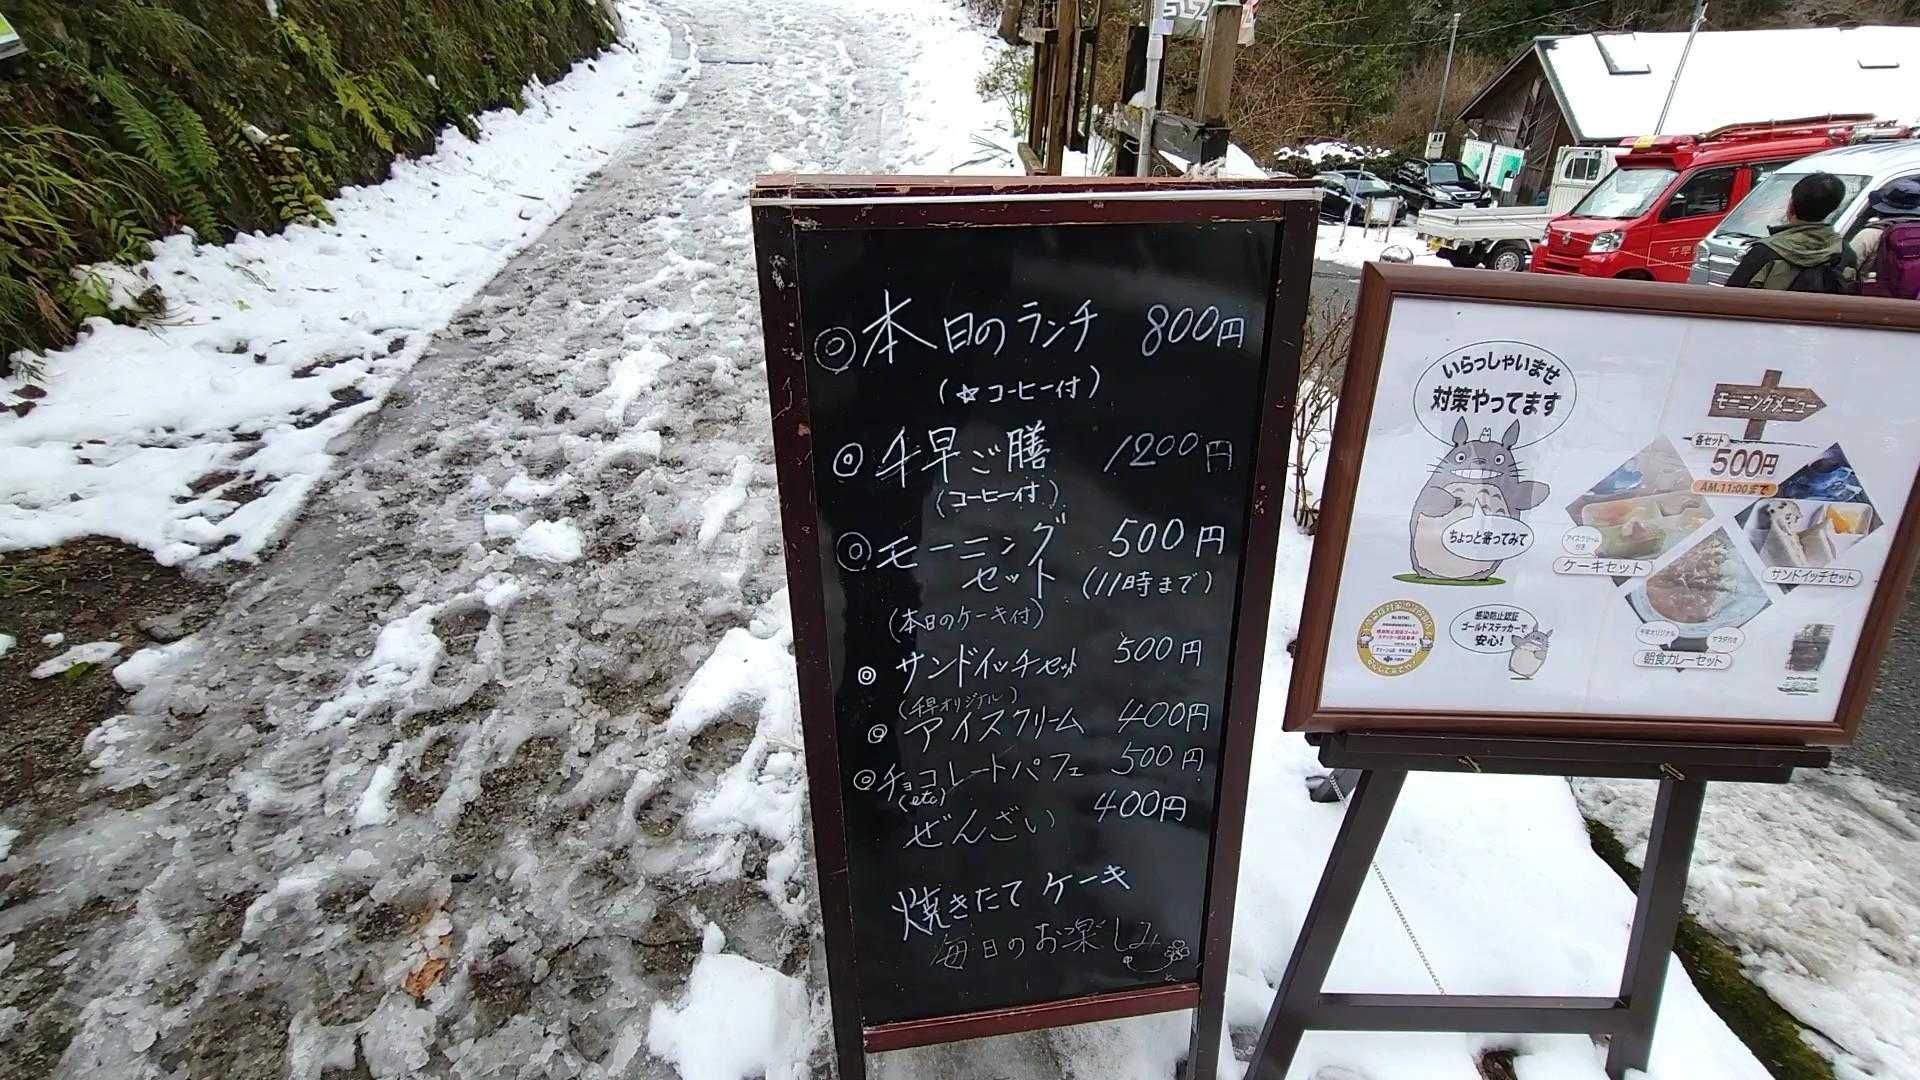 ◎本日のランチ 800円
(☆コーヒー付)
◎千早ご膳 1200円
(コーヒー付)
◎モーニング 500円
セット (11時まで)
(本日のケーキ付)
◎サンドイッチセット 500円
(千早オリジナル)
◎アイスクリーム 400円
◎チョコレートパフェ 500円
(etc)
ぜんざい 400円
焼きたてケーキ
毎日のお楽しみ
いらっしゃいませ
対策やってます
ちょっと寄ってみて
感染防止認証
ゴールドステッカーで
安心!
モーニングメニュー
各セット
500円
AM.11:00まで
アイスクリーム
付き
ケーキセット
サンドイッチセット
千早オリジナル
サラダ付き
朝食カレーセット
千早